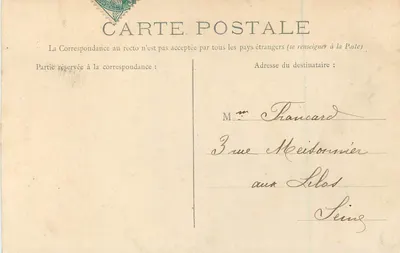 CARTE POSTALE
La Correspondance au recto n'est pas acceptée par tous les pays étrangers (se renseigner à la Poste)
Partie réservée à la correspondance :
Adresse du destinataire :
Mme Thancard
3 rue Meisonnier
aux Lilas
Seine